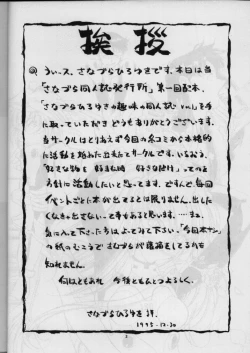 挨拶
うぃース、さなづらひろゆきです。本日は当
「さなづら同人誌発行所」第一回配本、
「さなづらひろゆきの趣味の同人誌 Vol.1」を手
に取っていただきどうもありがとうございます。
当サークルはとりあえず今回の冬コミから本格的
に活動を始めた出来たてサークルです。いちおう、
「好きな物を 好きな時 好きなだけ」っての
方針に活動したいと思ってます。ですんで、毎回
イベントごとに本が出てるとは限りません。出した
くなきゃ出さないって事もあると思います。…ま、
気に入って下さった方は、よってみて下さい。
の紙のむこうでさなづらが
知れません。
何はともあれ 今後ともひとつよろしく。
さなづらひろゆき 拝
1995.12.30